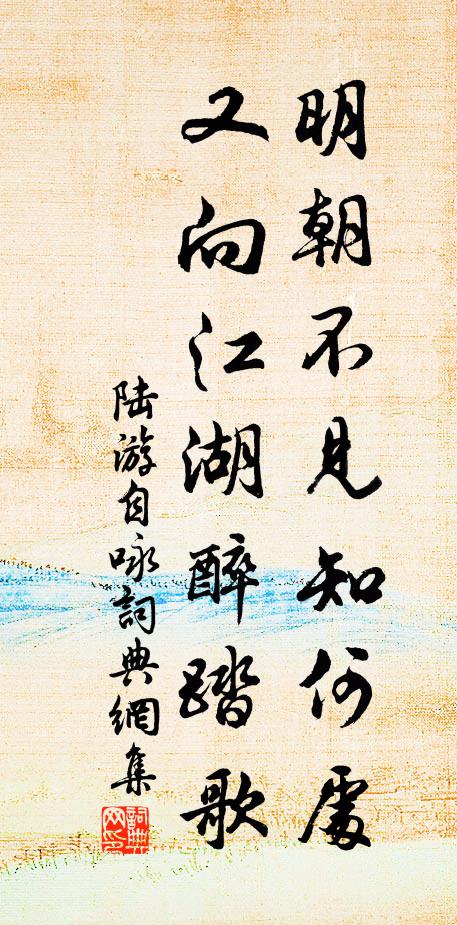 明朝不見知何處
又向江湖醉踏歌
陸游自咏詞典網集
詞典網印